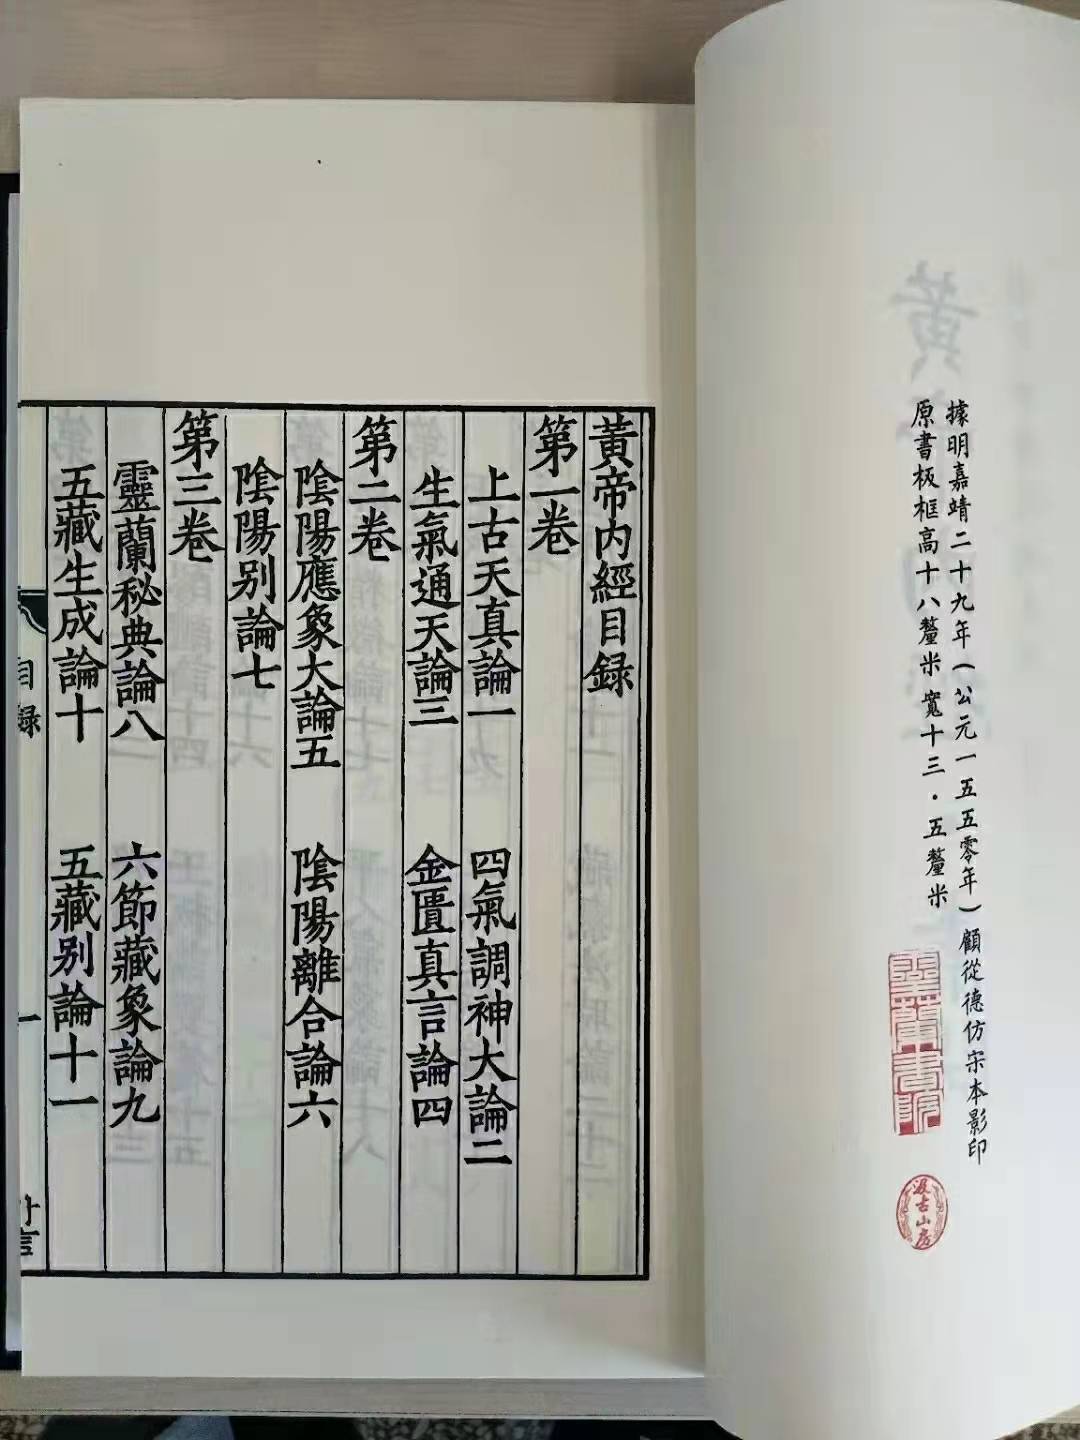 據明嘉靖二十九年(公元一五五零年)顧從德仿宋本影印
原書板框高十八釐米寬十三·五釐米
蘭書院
汲古山房
黃帝内經目録
第一卷
上古天真論一 四氣調神大論二
生氣通天論三 金匱真言論四
第二卷
陰陽應象大論五 陰陽離合論六
陰陽别論七
第三卷
靈蘭秘典論八 六節藏象論九
五藏生成論十 五藏别論十一
目録
一